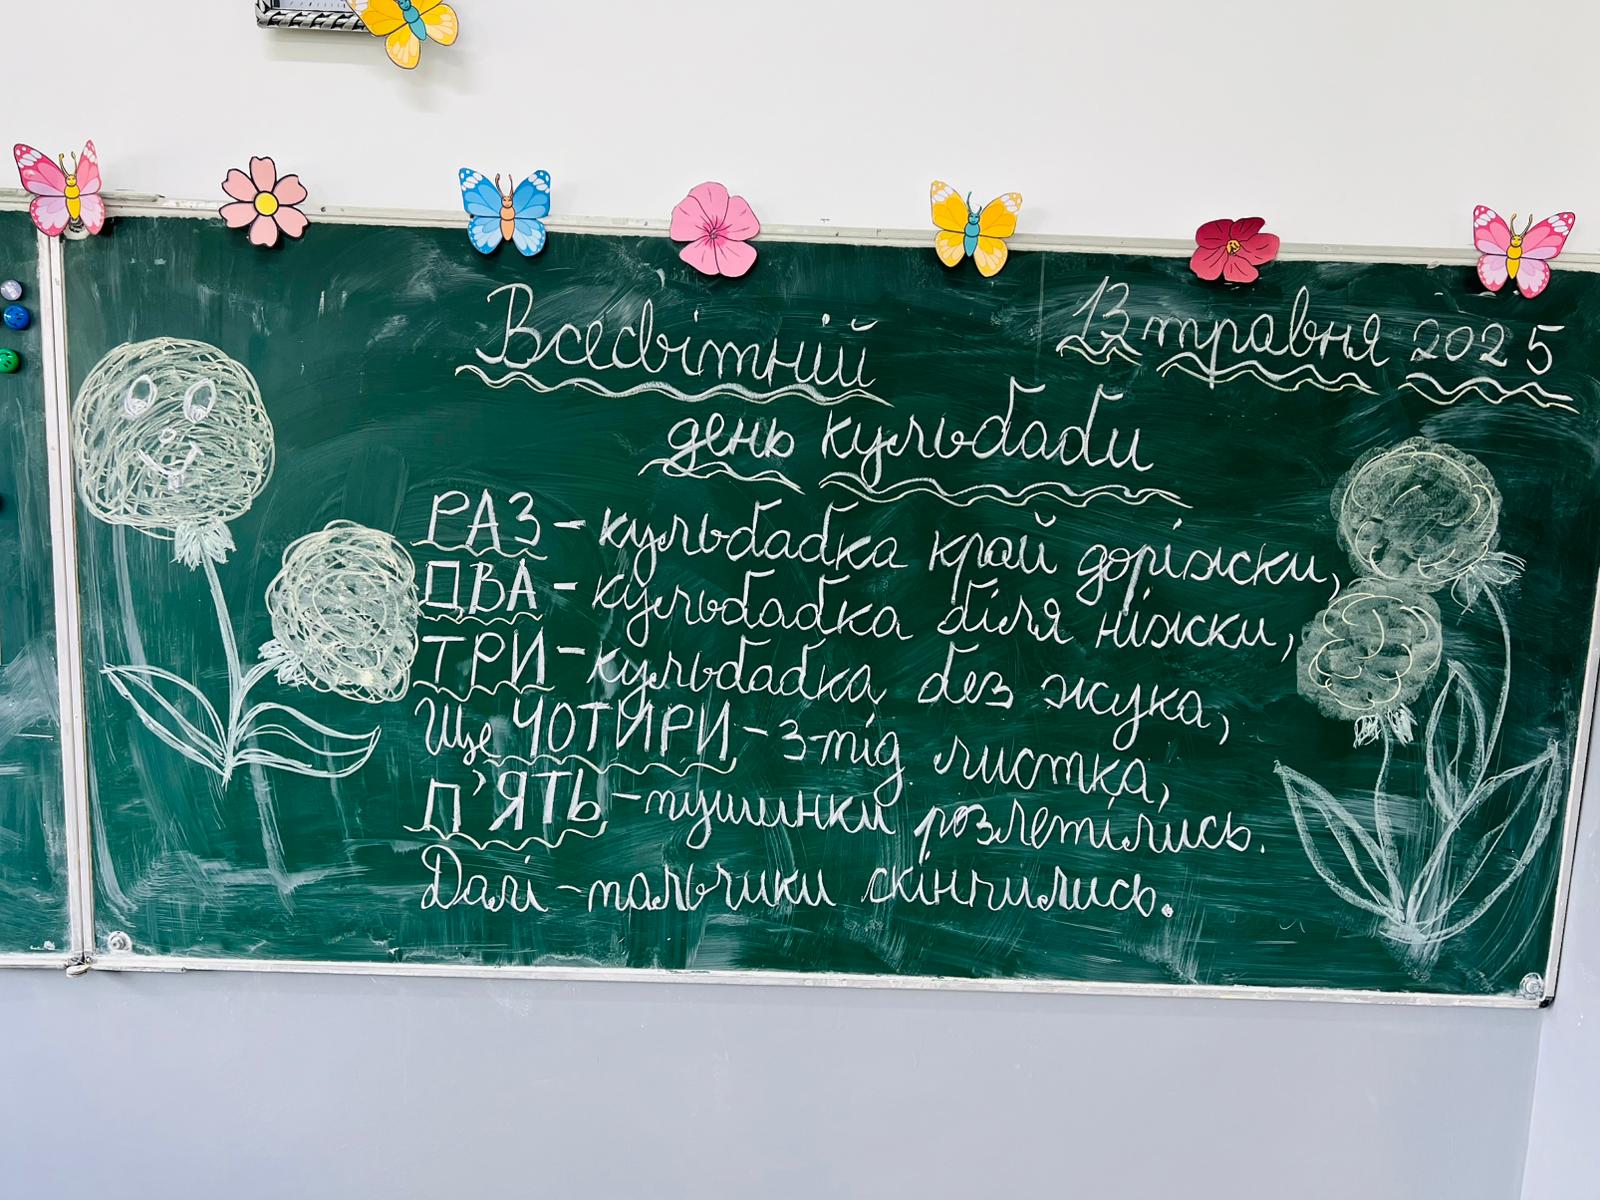 13 травня 2025
Всесвітній
день кульбаби
РАЗ - кульбабка край доріжки,
ДВА - кульбабка біля ніжки,
ТРИ - кульбабка без жука,
Ще ЧОТИРИ - з-під листка,
П'ЯТЬ - пушинки розлетілись.
Далі - пальчики скінчились.